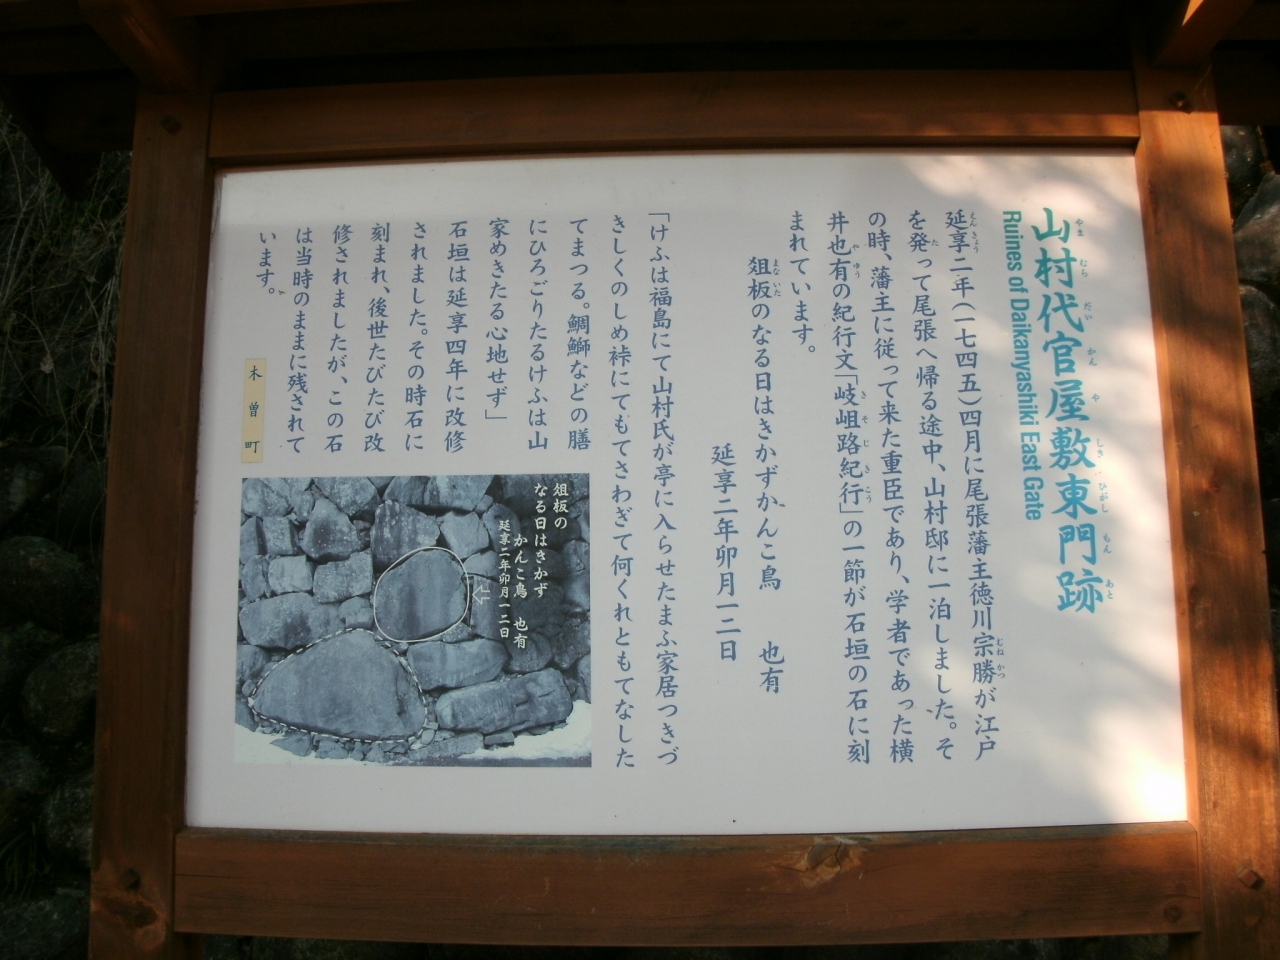 山村代官屋敷東門跡
Ruines of Daikanyashiki East Gate
延享二年(一七四五)四月に尾張藩主徳川宗勝が江戸
を発って尾張へ帰る途中、山村邸に一泊しました。そ
の時、藩主に従って来た重臣であり、学者であった横
井也有の紀行文「岐岨路紀行」の一節が石垣の石に刻
まれています。
俎板のなる日はきかずかんこ鳥 也有
延享二年卯月一二日
「けふは福島にて山村氏が亭に入らせたまふ家居つきづ
きしくのしめ裃にてもてさわぎて何くれともてなした
てまつる。鯛鰤などの膳
にひろごりたるけふは山
家めきたる心地せず」
石垣は延享四年に改修
されました。その時石に
刻まれ、後世たびたび改
修されましたが、この石
は当時のままに残されて
います。
木曽町
俎板の
なる日はきかず
かんこ鳥 也有
延享二年卯月一二日